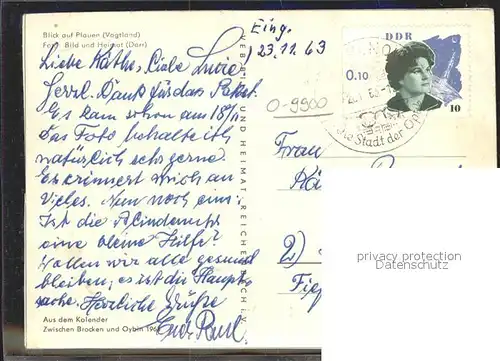 Blick auf Plauen (Vogtland)
Foto: Bild und Heimat (Darr)
Eing.
23.11.63
Liebe Käthe, Liebe
herzl. Dank für das Paket.
Es kam schon am 18/11
das Foto behalte ich
natürlich sehr gerne
Es erinnert mich an
Vieles. Nun noch eins:
Ist die
eine kleine Hilfe?
Wollen wir alle gesund
bleiben, es ist die Haupt-
sache. Herzliche Grüße
Aus dem Kalender
Zwischen Brocken und Oybin
VEB BILD UND HEIMAT REICHENBACH I. V.
0-9900
DDR
0.10
10
die Stadt der
Frau
2)
privacy protection
Datenschutz